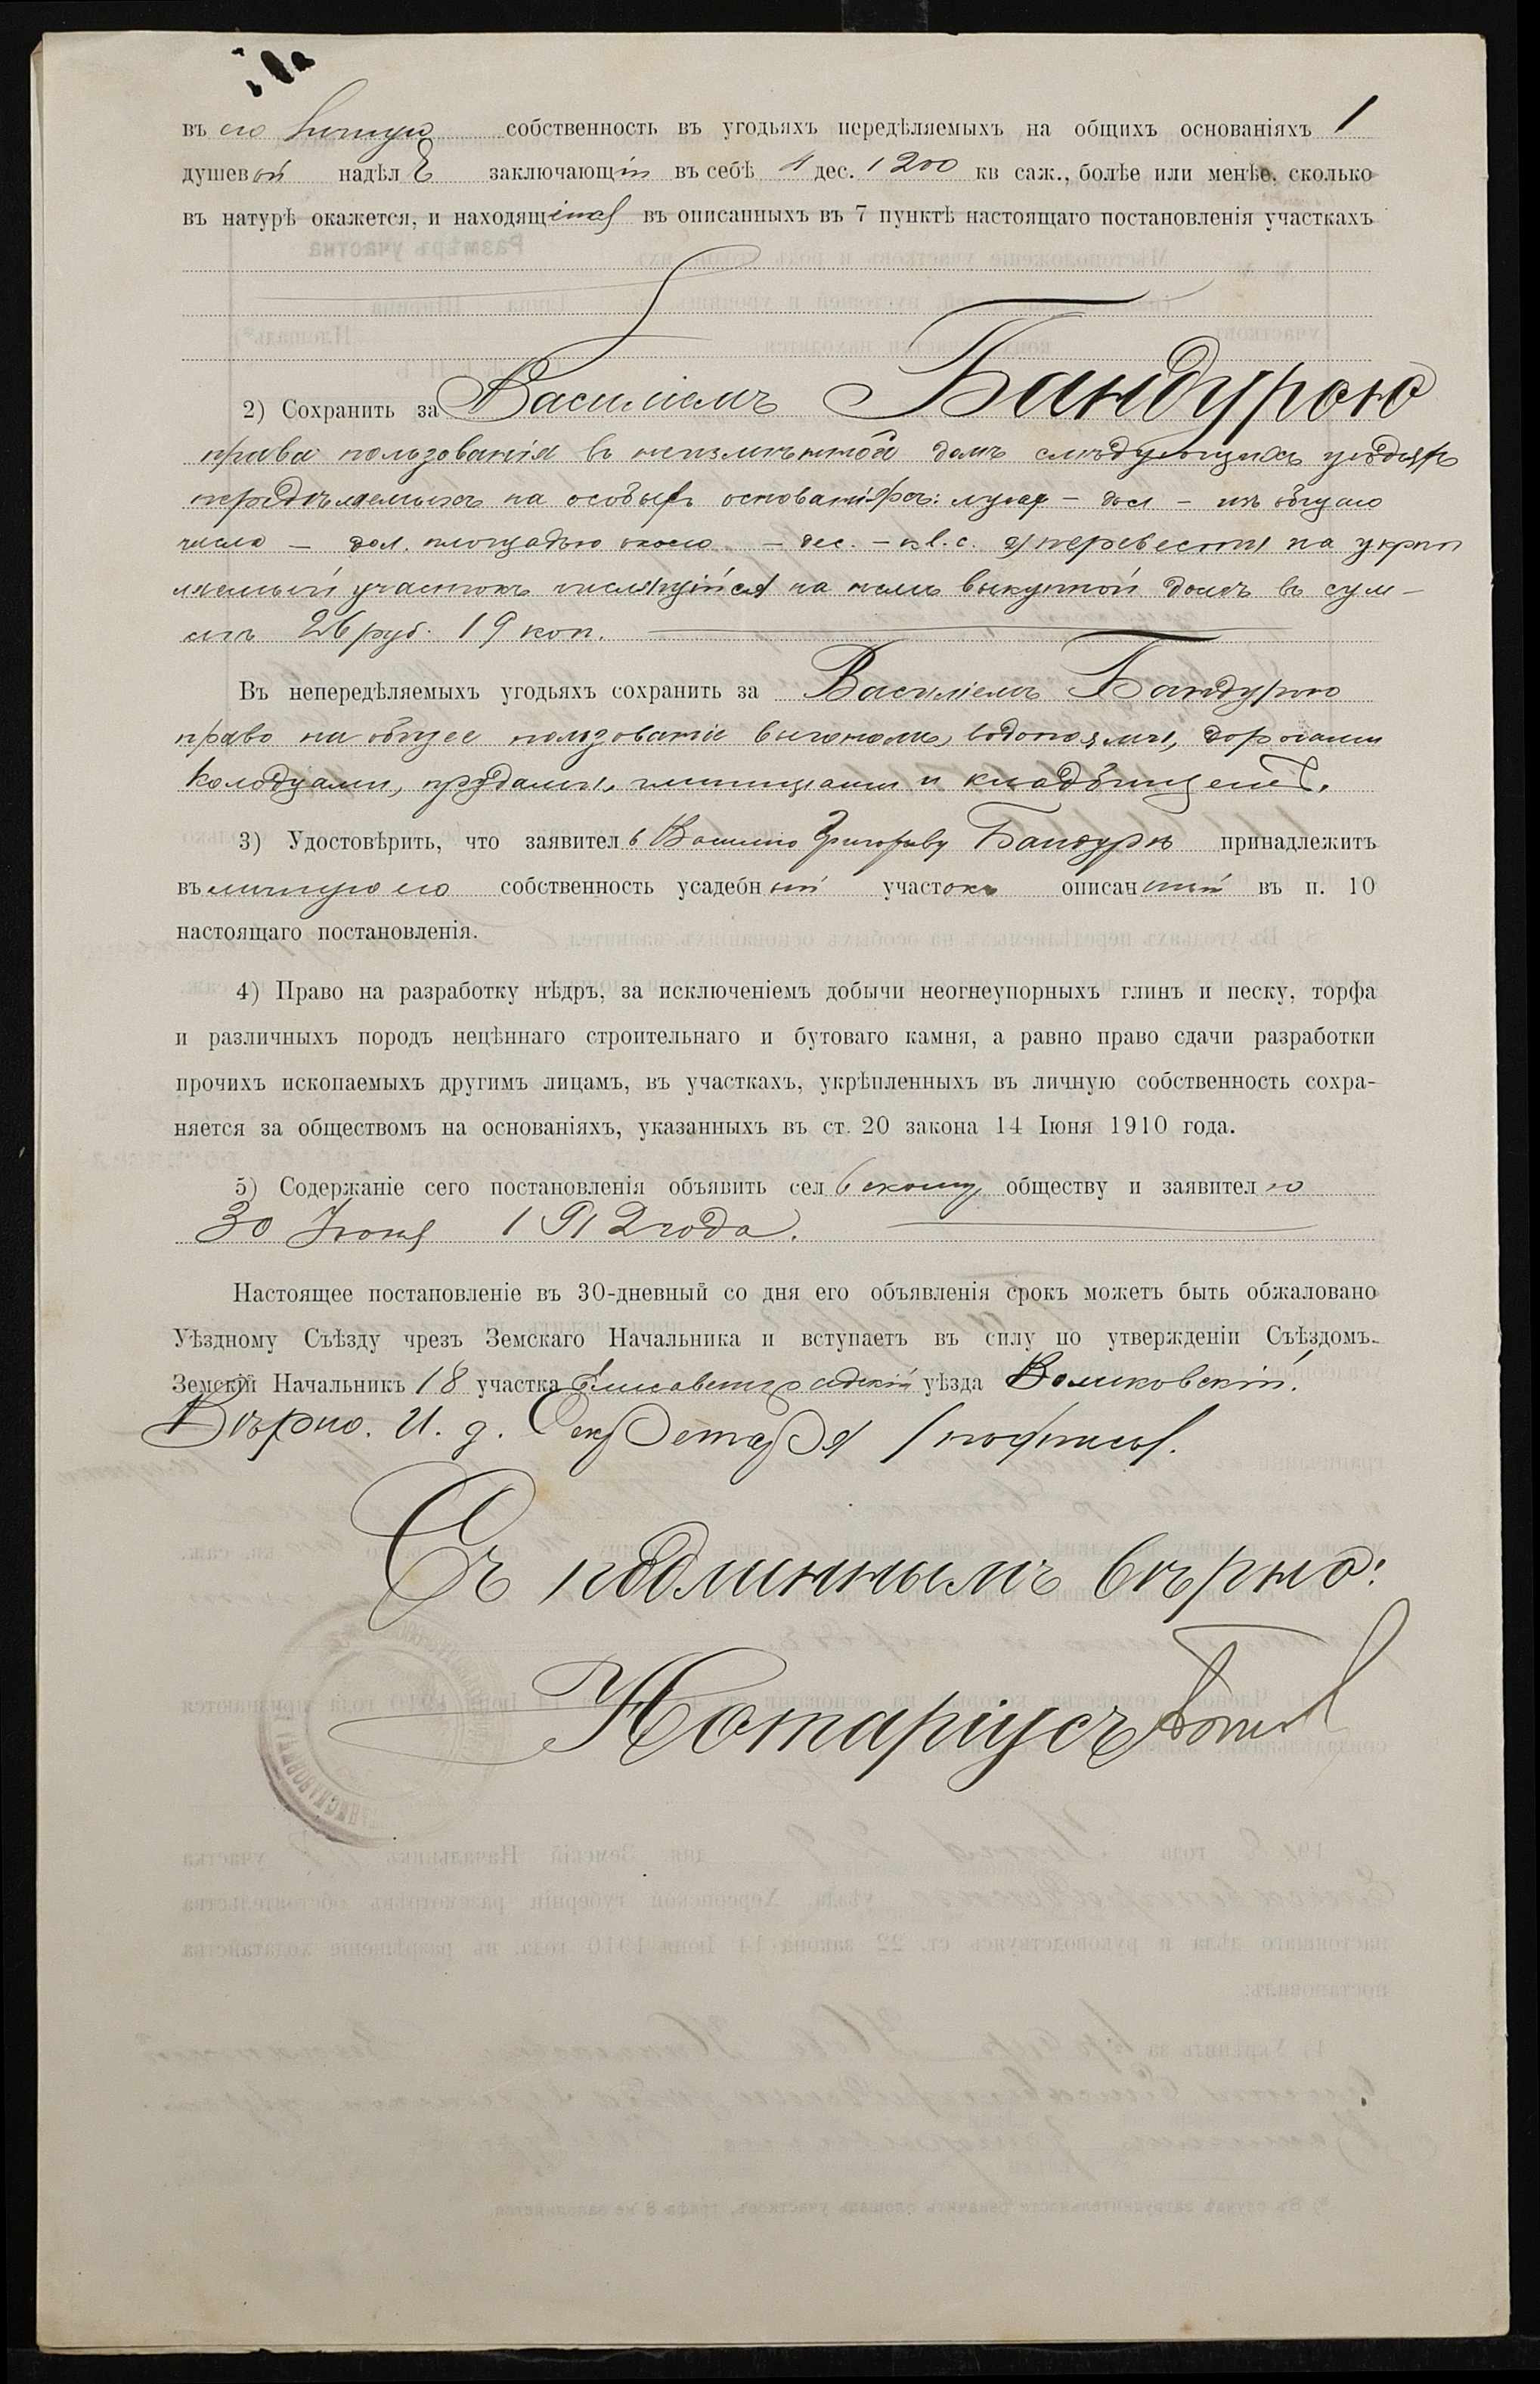 въ его личную собственность въ угодьяхъ передѣляемыхъ на общихъ основаніяхъ 1
душевой надѣлъ заключающій въ себѣ 4 дес. 1200 кв саж., болѣе или менѣе, сколько
въ натурѣ окажется, и находящіися въ описанныхъ въ 7 пунктѣ настоящаго постановленія участкахъ
2) Сохранить за Василіемъ Бандурою
права пользованія въ неизмѣнной долѣ слѣдующихъ угодьяхъ
передѣляемыхъ на особыхъ основаніяхъ: лугах – дол – изъ общаго
числа – дол. площадью около – дес. – кв. с. перевести на укрѣп
ляемый участокъ числящійся на немъ выкупной долгъ въ сум–
мѣ 26 руб. 19 коп.
Въ непередѣляемыхъ угодьяхъ сохранить за Василіемъ Бандурою
право на общее пользованіе выгономъ, водопоями, дорогами
колодцами, прудами, глинищами и кладбищемъ.
3) Удостовѣрить, что заявителю Василию Григорьеву Бандурѣ принадлежитъ
въ личную его собственность усадебный участокъ описанный въ п. 10
настоящаго постановленія.
4) Право на разработку нѣдръ, за исключеніемъ добычи неогнеупорныхъ глинъ и песку, торфа
и различныхъ породъ нецѣннаго строительнаго и бутоваго камня, а равно право сдачи разработки
прочихъ ископаемыхъ другимъ лицамъ, въ участкахъ, укрѣпленныхъ въ личную собственность сохра-
няется за обществомъ на основаніяхъ, указанныхъ въ ст. 20 закона 14 Іюня 1910 года.
5) Содержаніе сего постановленія объявить сельскому обществу и заявителю
30 Іюня 1912 года.
Настоящее постановленіе въ 30-дневный со дня его объявленія срокъ можетъ быть обжаловано
Уѣздному Съѣзду чрезъ Земскаго Начальника и вступаетъ въ силу по утвержденіи Съѣздомъ.
Земскій Начальникъ 18 участка Елисаветградскій уѣзда Воликовскій.
Вѣрно. И. д. Секретаря (подпись).
Съ подлиннымъ вѣрно:
Нотаріусъ